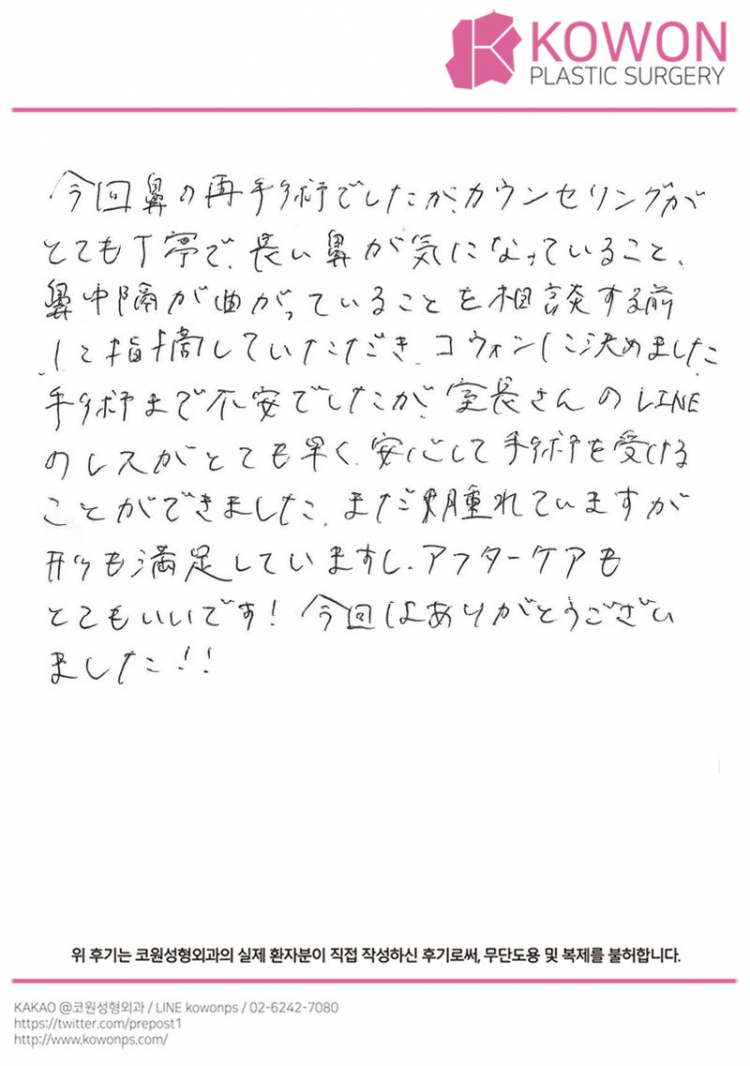 KOWON
PLASTIC SURGERY
今回鼻の再手術でしたが、カウンセリングが
とても丁寧で、長い鼻が気になっていること、
鼻中隔が曲がっていることを相談する前
に指摘していただき、コウォンに決めました
手術まで不安でしたが、室長さんのLINE
のレスがとても早く、安心して手術を受ける
ことができました。まだ腫れていますが
形も満足していますし、アフターケアも
とてもいいです! 今回はありがとうござい
ました!!
위 후기는 코원성형외과의 실제 환자분이 직접 작성하신 후기로써, 무단도용 및 복제를 불허합니다.
KAKAO @코원성형외과 / LINE kowonps / 02-6242-7080
https://twitter.com/prepost1
http://www.kowonps.com/